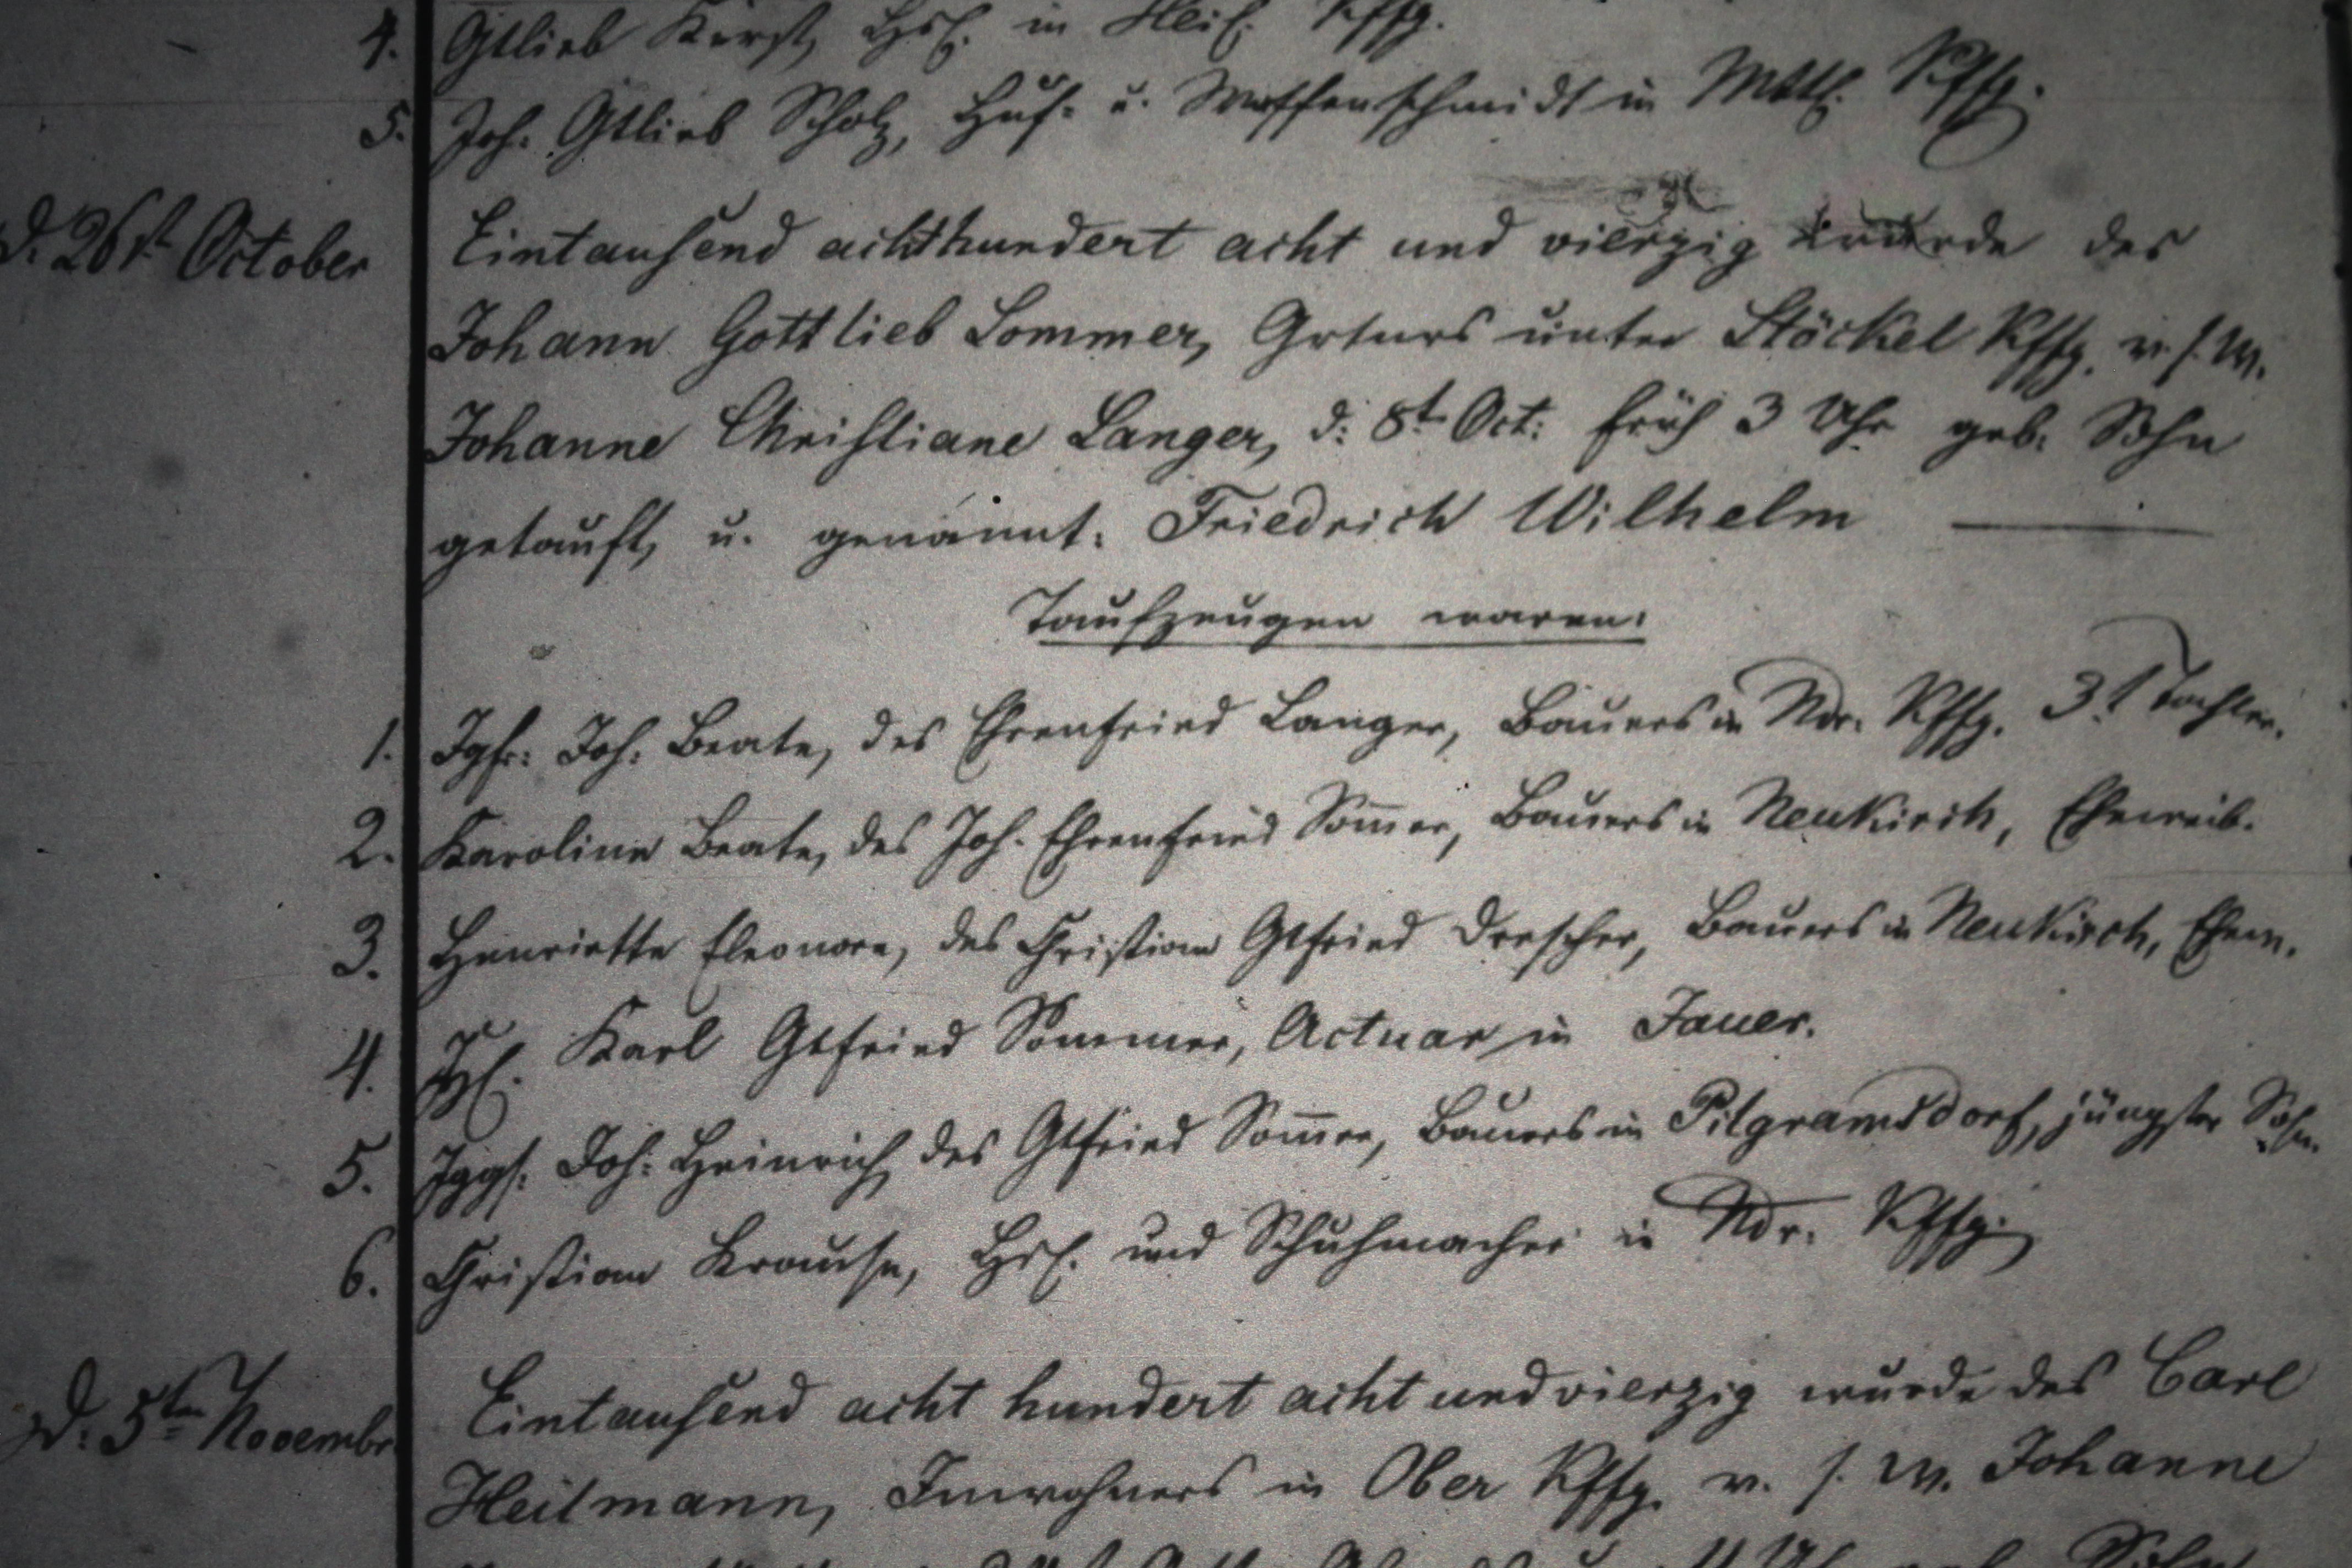 4. Gtlieb Kerst, Hsl. in Heil. Kffg.
5. Joh. Gtlieb Scholz, Huf- u. Waffenschmidt in Mttl. Kffg.
d. 26st October Eintausend achthundert acht und vierzig wurde des
Johann Gottlieb Sommer, Grtnrs unter Stöckel Kffg. v. s. W.
Johanne Christiane Langer, d: 8t Oct: früh 3 Uhr geb. Sohn
getauft, u. genannt: Friedrich Wilhelm
Taufzeugen waren:
1. Jgfr: Joh: Beate, des Ehrenfried Langer, Bauers in Ndr. Kffg. 3t Tochter.
2. Karoline Beate, des Joh. Ehrenfried Som̅er, Bauers in Neukirch, Eheweib.
3. Henriette Eleonore, des Christian Gtfried Drescher, Bauers in Neukirch, Ehew.
4. Karl Gtfried Sommer, Actuar in Jauer.
5. Jggs: Joh: Heinrich, des Gtfried Som̅er, Bauers in Pilgramsdorf, jüngster Sohn.
6. Christian Krause, Hsl. und Schuhmacher in Ndr. Kffg.
d. 5ten Novembr Eintausend acht hundert acht und vierzig wurde des Carl
Heilmann, Inwohners in Ober Kffg. v. s. W. Johanne